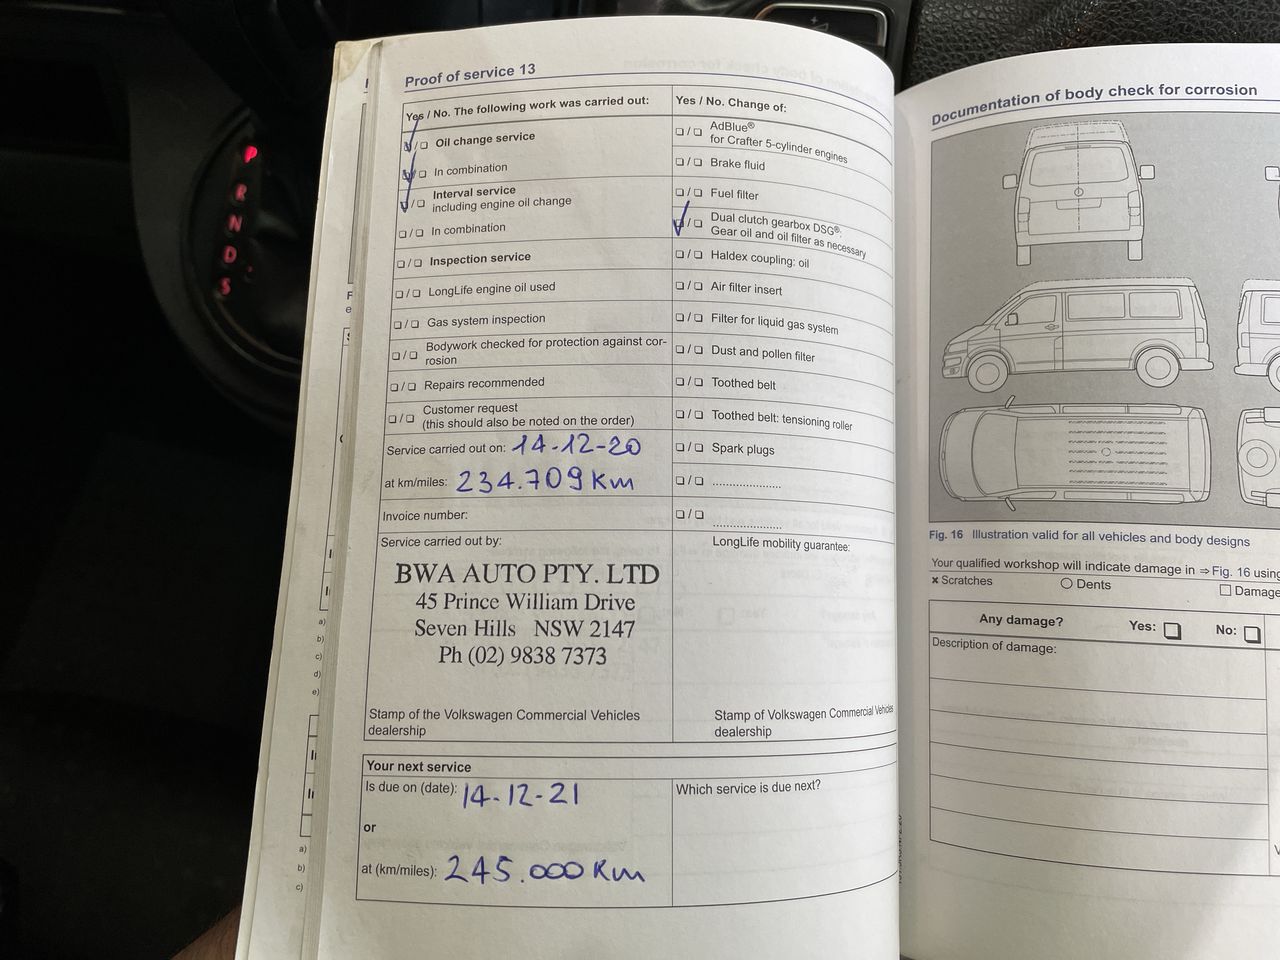 Proof of service 13
Yes / No. The following work was carried out:
❏ / ❏ Oil change service
❏ / ❏ In combination
❏ / ❏ Interval service
including engine oil change
❏ / ❏ In combination
❏ / ❏ Inspection service
❏ / ❏ LongLife engine oil used
❏ / ❏ Gas system inspection
❏ / ❏ Bodywork checked for protection against cor-
rosion
❏ / ❏ Repairs recommended
❏ / ❏ Customer request
(this should also be noted on the order)
Service carried out on: 14-12-20
at km/miles: 234.709 Km
Invoice number:
Service carried out by:
BWA AUTO PTY. LTD
45 Prince William Drive
Seven Hills NSW 2147
Ph (02) 9838 7373
Stamp of the Volkswagen Commercial Vehicles
dealership
Yes / No. Change of:
❏ / ❏ AdBlue®
for Crafter 5-cylinder engines
❏ / ❏ Brake fluid
❏ / ❏ Fuel filter
❏ / ❏ Dual clutch gearbox DSG®:
Gear oil and oil filter as necessary
❏ / ❏ Haldex coupling: oil
❏ / ❏ Air filter insert
❏ / ❏ Filter for liquid gas system
❏ / ❏ Dust and pollen filter
❏ / ❏ Toothed belt
❏ / ❏ Toothed belt: tensioning roller
❏ / ❏ Spark plugs
❏ / ❏ .....................
❏ / ❏ .....................
LongLife mobility guarantee:
Stamp of Volkswagen Commercial Vehicles
dealership
Your next service
Is due on (date): 14-12-21
or
at (km/miles): 245.000 Km
Which service is due next?
Documentation of body check for corrosion
Fig. 16 Illustration valid for all vehicles and body designs
Your qualified workshop will indicate damage in ⇒ Fig. 16 using
× Scratches ○ Dents □ Damage
Any damage? Yes: ❏ No: ❏
Description of damage:
P
R
N
D
S
a)
b)
c)
d)
e)
a)
b)
c)